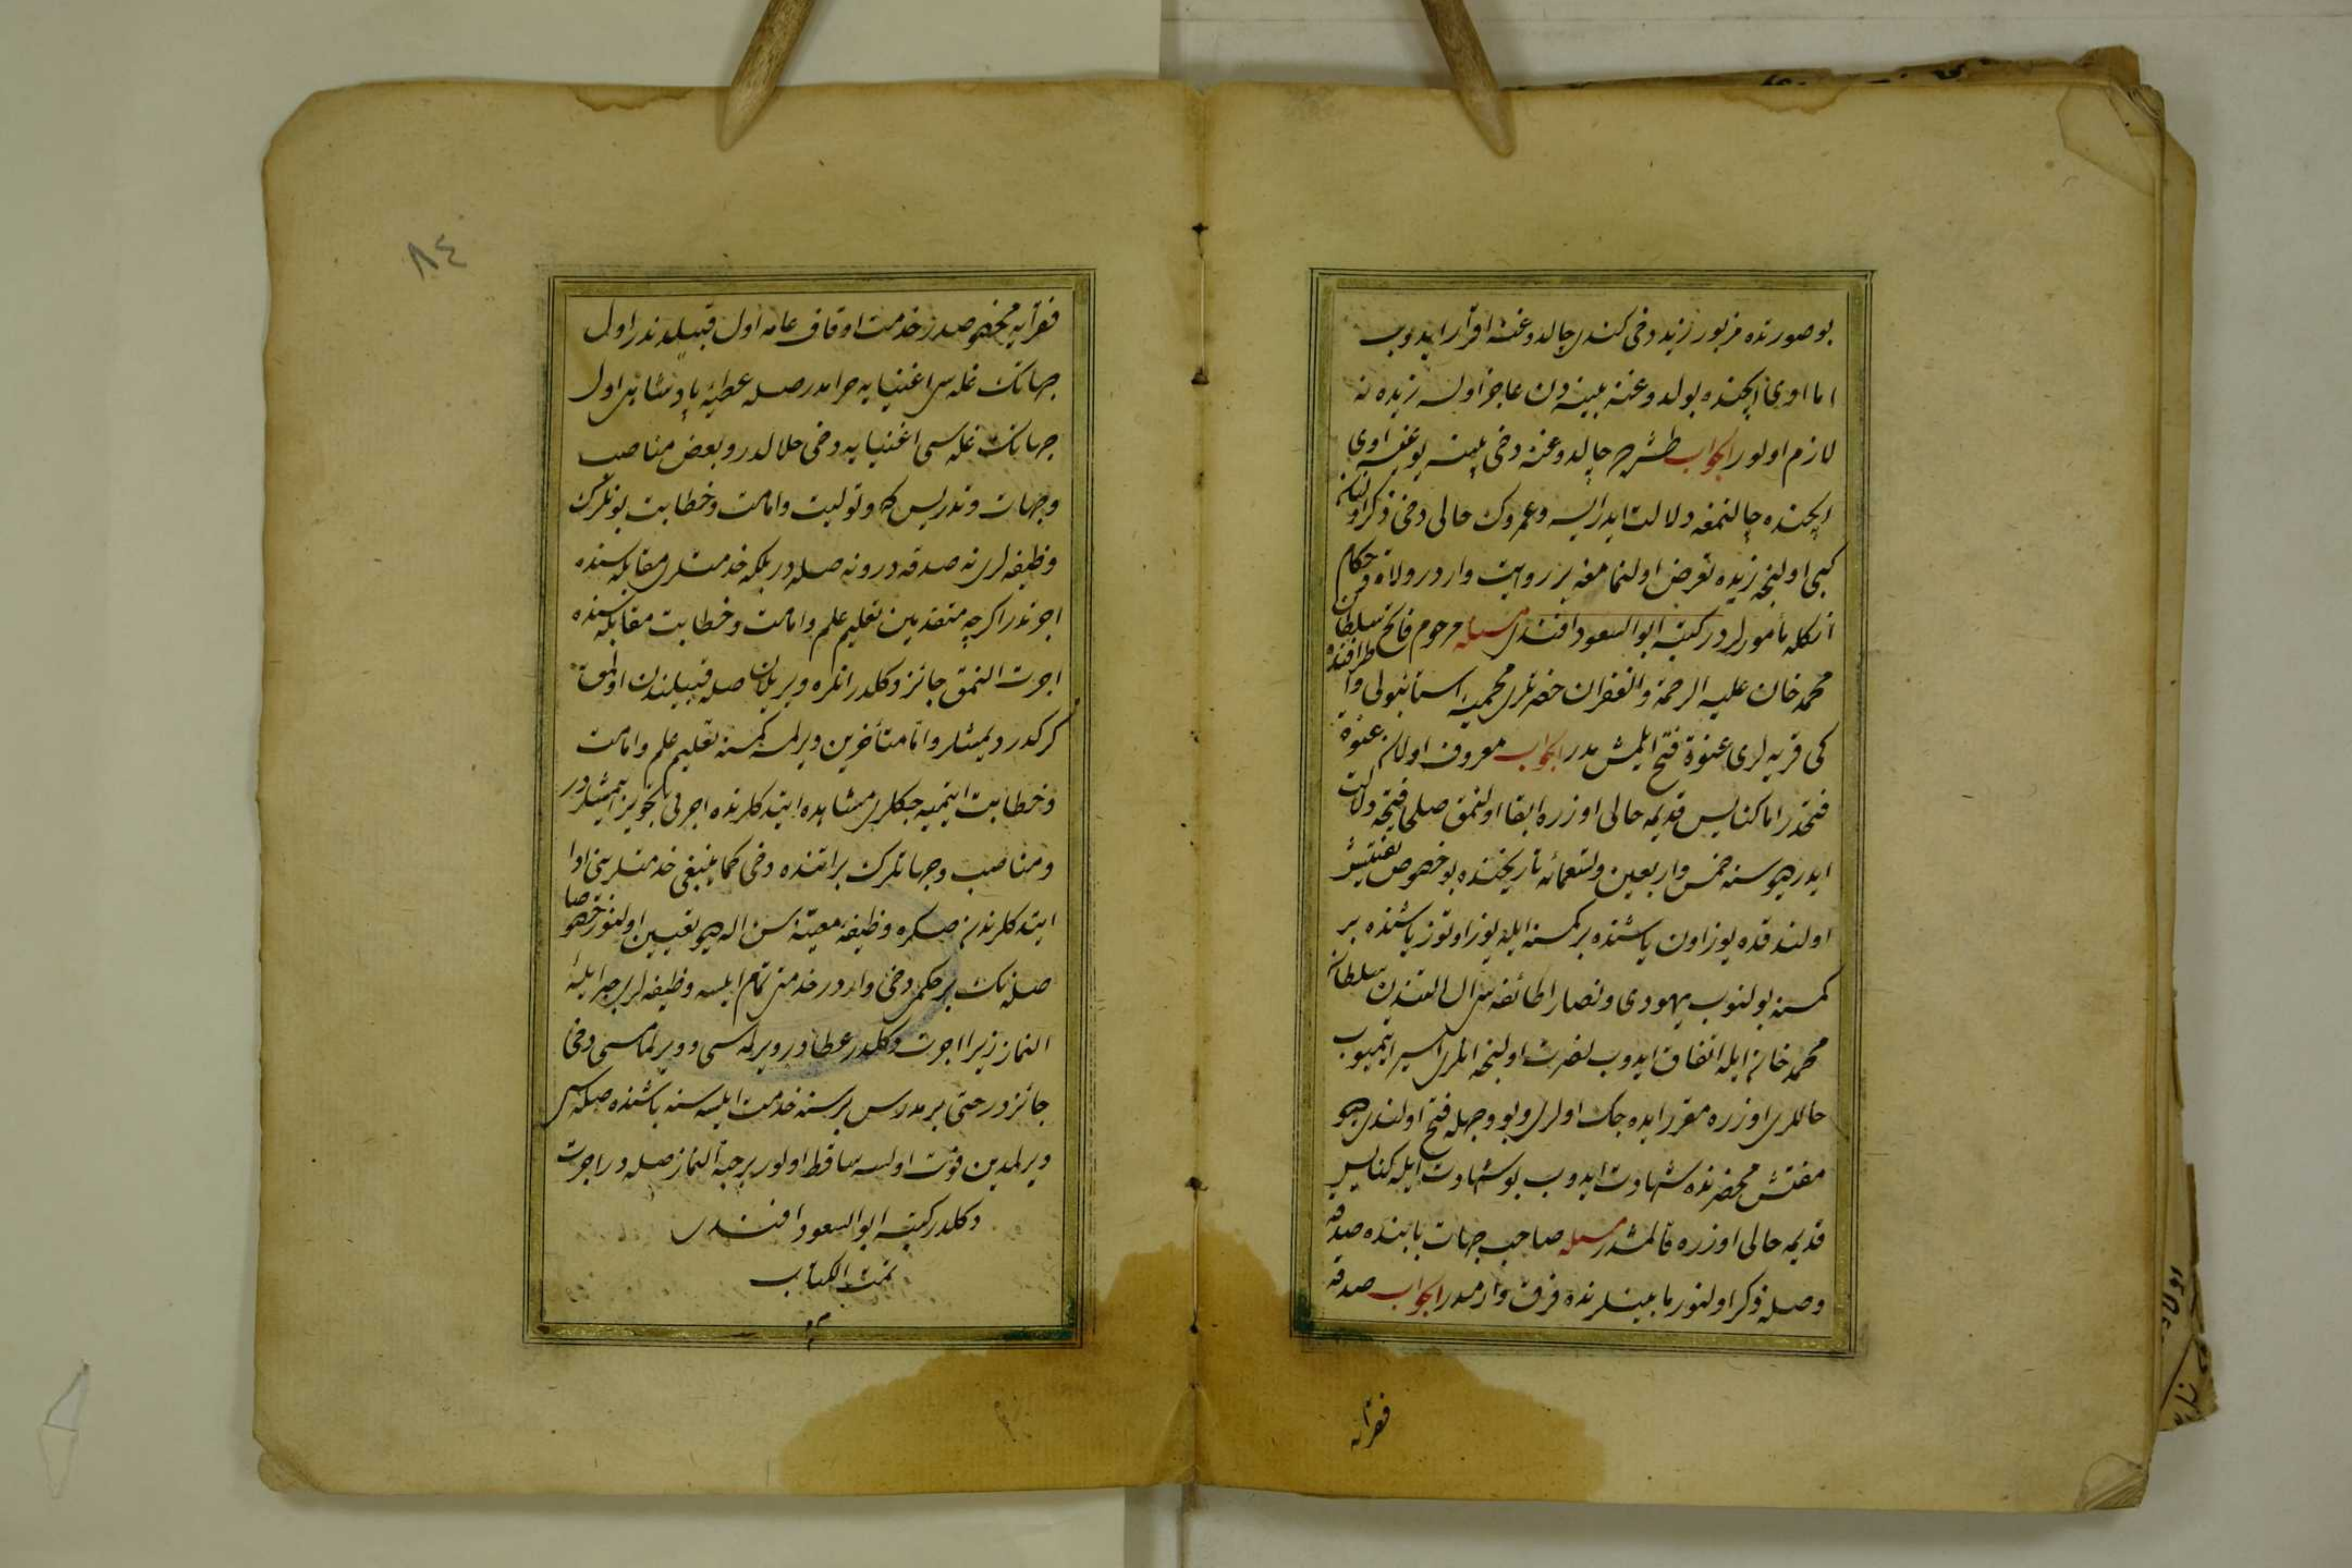 بو صورتده مزبور زید دخی کندی چالدوغنه اقرار ایدوب
اما اوی ایچنده بولدوغنه بینه دن عاجز اولسه زیده نه
لازم اولور الجواب طشره چالدوغنه دخی بینه یوغسه اوی
ایچنده چالنمغه دلالت ایدرایسه وعمروک حالی دخی ذکر اولنان
کبی اولیجق زیده تعرض اولنمامغه بر روایت واردر ولاة وحکام
انکله مأمورلردر کتبه ابو السعود افندی مسئله مرحوم فاتح سلطان
محمد خان علیه الرحمة والغفران حضرتلری محمیه استانبولی و اطرافنده
کی قریه لری عنوة فتح ایلمش مدر الجواب معروف اولان عنوة
فتحدر اما کنایس قدیمه حالی اوزره ابقا اولنمق صلحا فتحه دلالت
ایدر سنه خمس واربعین وتسعمائه تاریخنده بو خصوص تفتیش
اولندقده یوز اون یاشنده بر کمسنه ایله یوز اوتوز یاشنده بر
کمسنه بولنوب یهودی ونصارا طائفه سی ال التندن سلطان
محمد خان ایله اتفاق ایدوب نصرت اولیجق انلری اسیر ایتمیوب
حاللری اوزره مقرر ایده جک اولدی وبو وجهله فتح اولندی دیو
مفتش محضرنده شهادت ایدوب بو شهادت ایله کنایس
قدیمه حالی اوزره قالمشدر مسئله صاحب جهات بابنده صدقه
وصله ذکر اولنور مابینلرنده فرق وارمیدر الجواب صدقه
فقرایه
٨٤
فقرایه مخصوصدر خدمت اوقاف عامه اول قبیلدندر اول
جهاتک غله سی اغنیایه حرامدر صله عطیه پادشاهی اول
جهاتک غله سی اغنیایه دخی حلالدر وبعض مناصب
وجهات وتدریس که وتولیت وامامت وخطابت بونلرک
وظیفه لری نه صدقه در ونه صله در بلکه خدمتلری مقابله سنده
اجرتدر اکرچه متقدمین تعلیم علم وامامت وخطابت مقابله سنده
اجرت النمق جائز دکلدر انلره ویریلان صله قبیلندن اولمق
کرکدر دیمشلر واما متأخرین ویرلمسه کمسنه تعلیم علم وامامت
وخطابت ایتمیه جکلری مشاهده ایتدکلرنده اجرتی تجویز ایتمشلردر
ومناصب وجهاتلرک براتنده دخی کما ینبغی خدمتلرینی ادا
ایتدکلرندن صکره وظیفه معینه سن اله دیو تعیین اولنور خصوصا
صله نک بر حکمی دخی واردر خدمتی تمام ایلسه وظیفه لری جبر ایله
النماز زیرا اجرت دکلدر عطادر ویرلمسی وویرلمامسی دخی
جائزدر حتی بر مدرس بر سنه خدمت ایلسه سنه باشنده صله سی
ویرلمدین فوت اولسه ساقط اولور بر حبه النماز صله در اجرت
دکلدر کتبه ابو السعود افندی
تمت الکتاب
م